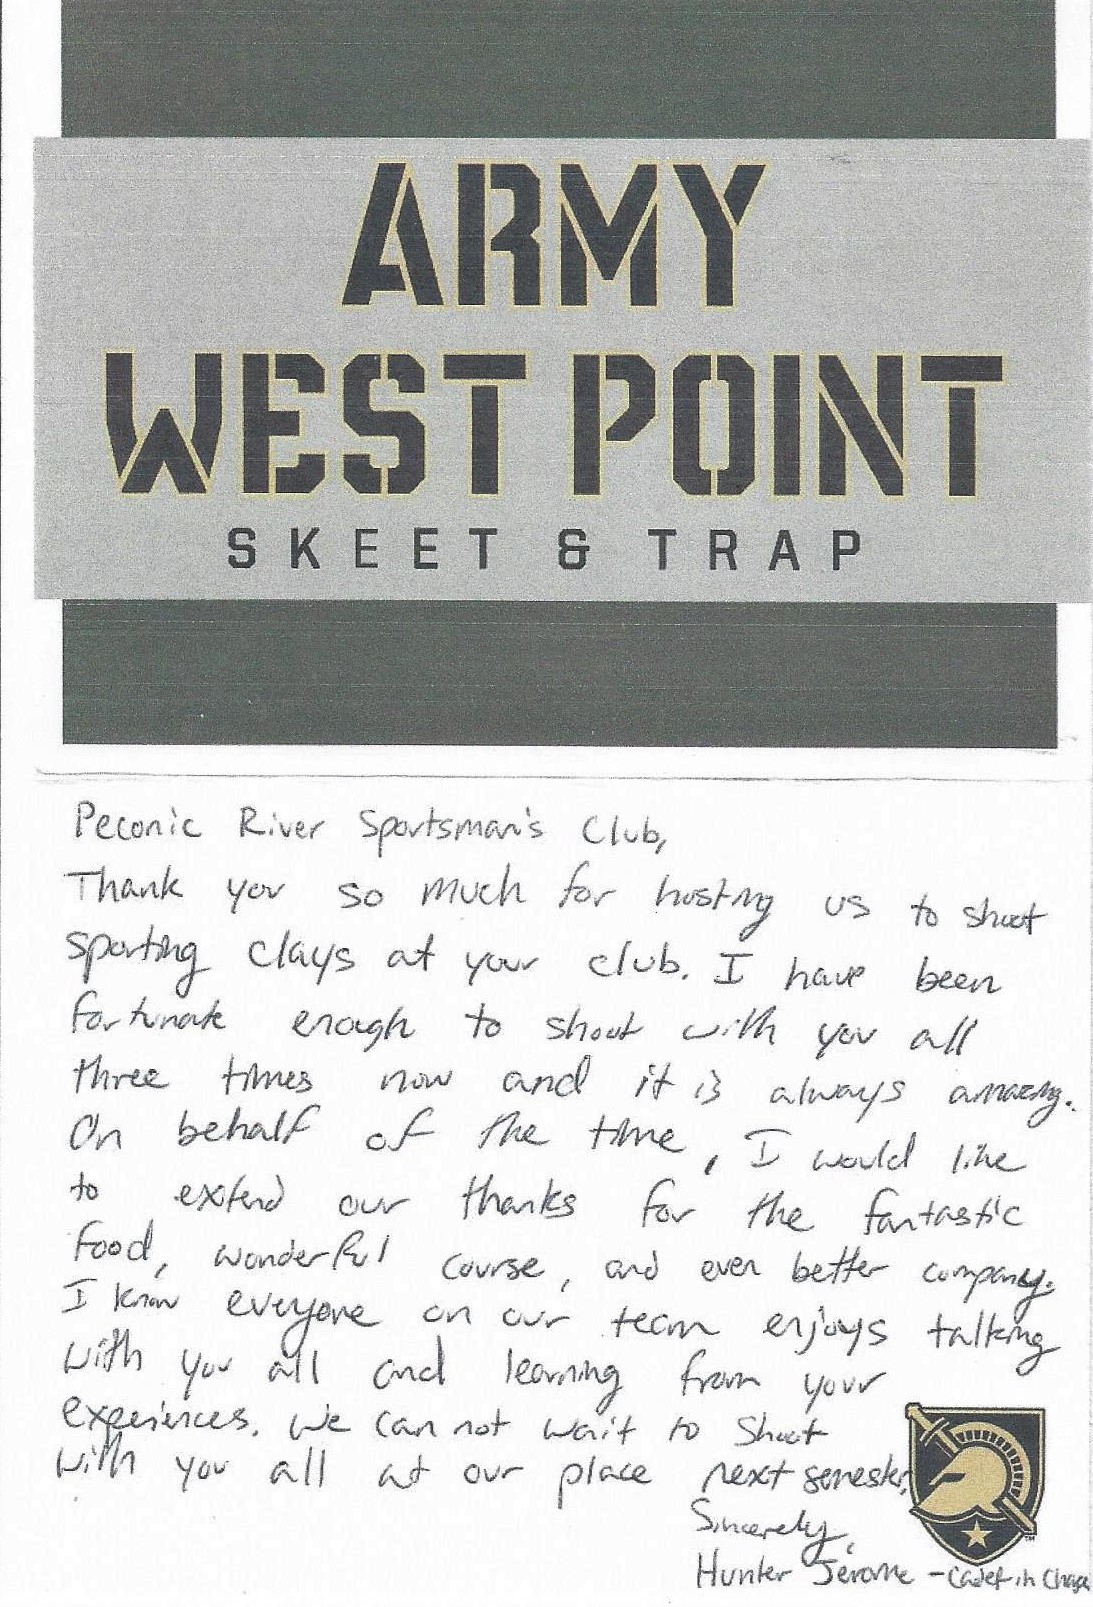 ARMY
WEST POINT
SKEET & TRAP
Peconic River Sportsman's Club,
Thank you so much for hosting us to shoot
sporting clays at your club. I have been
fortunate enough to shoot with you all
three times now and it is always amazing.
On behalf of the time, I would like
to extend our thanks for the fantastic
food, wonderful course, and even better company.
I know everyone on our team enjoys talking
with you all and learning from your
experiences. We can not wait to shoot
with you all at our place next semester,
Sincerely,
Hunter Jerome - Cadet in Charge
TM